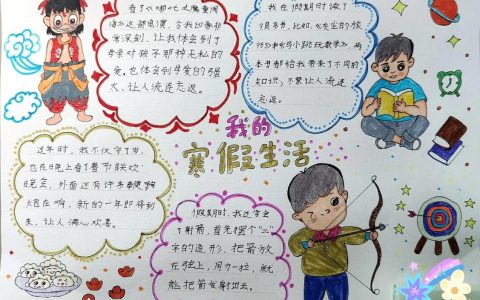 看了《哪吒之魔童闹
海》这部电影,令我印象
非常深刻,让我体会到了
母亲对孩子那种无私的
爱,也体会到母爱的强
大,让人流连忘返。
我在假期时读了
很多书,比如《灰尘的旅
行》
两
本书都给我带来了不同的
知识,不禁让人流连
忘返。
我的
寒假生活
过年时,我不仅守了岁,
也在晚上看了春节联欢
晚会,外面还有许多鞭
炮在响,新的一年即将到
来,让人满心欢喜。
假期时,我还学会
了射箭,首先摆个“二”
字的造形,把箭放
在弦上,用力一拉,就
能把箭发射出去。